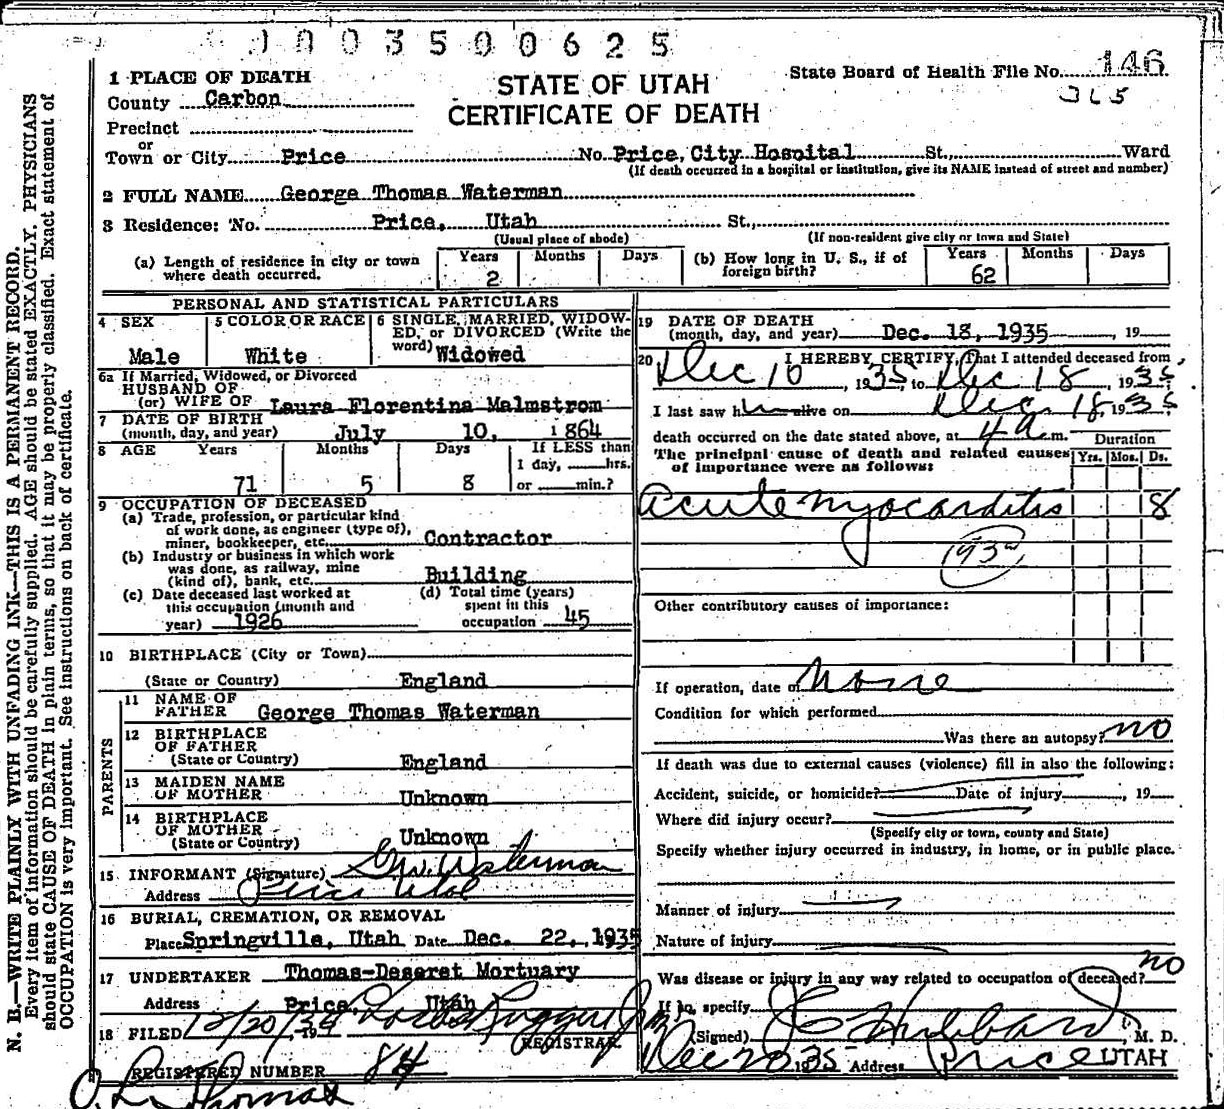 1 0 0 3 5 0 0 6 2 5
1 PLACE OF DEATH
County Carbon
Precinct
or
Town or City Price No. Price, City Hospital St., Ward
(If death occurred in a hospital or institution, give its NAME instead of street and number)
STATE OF UTAH
CERTIFICATE OF DEATH
State Board of Health File No. 146
365
2 FULL NAME George Thomas Waterman
3 Residence: No. Price, Utah St.,
(Usual place of abode) (If non-resident give city or town and State)
(a) Length of residence in city or town where death occurred. Years 2 Months Days
(b) How long in U. S., if of foreign birth? Years 62 Months Days
PERSONAL AND STATISTICAL PARTICULARS
4 SEX Male
5 COLOR OR RACE White
6 SINGLE, MARRIED, WIDOW-
ED, or DIVORCED (Write the
word) Widowed
6a If Married, Widowed, or Divorced
HUSBAND OF
(or) WIFE OF Laura Florentina Malmstrom
7 DATE OF BIRTH
(month, day, and year) July 10, 1864
8 AGE Years 71 Months 5 Days 8 If LESS than
1 day, hrs.
or min.?
9 OCCUPATION OF DECEASED
(a) Trade, profession, or particular kind
of work done, as engineer (type of),
miner, bookkeeper, etc. Contractor
(b) Industry or business in which work
was done, as railway, mine
(kind of), bank, etc. Building
(c) Date deceased last worked at
this occupation (month and
year) 1926
(d) Total time (years)
spent in this
occupation 45
10 BIRTHPLACE (City or Town)
(State or Country) England
PARENTS
11 NAME OF
FATHER George Thomas Waterman
12 BIRTHPLACE
OF FATHER
(State or Country) England
13 MAIDEN NAME
OF MOTHER Unknown
14 BIRTHPLACE
OF MOTHER
(State or Country) Unknown
15 INFORMANT (Signature) G.W. Waterman
Address Price Utah
16 BURIAL, CREMATION, OR REMOVAL
Place Springville, Utah Date Dec. 22, 1935
17 UNDERTAKER Thomas-Deseret Mortuary
Address Price, Utah
18 FILED 12/20/34 19
REGISTRAR
REGISTERED NUMBER 84
O. L. Thomas
19 DATE OF DEATH
(month, day, and year) Dec. 18, 1935 , 19
20 I HEREBY CERTIFY, That I attended deceased from
Dec 10 , 1935 to Dec 18 , 1935
I last saw him alive on Dec. 18, 1935
death occurred on the date stated above, at 4 a.m.
The principal cause of death and related causes
of importance were as follows:
Duration
Yrs. Mos. Ds.
Acute myocarditis 8
Other contributory causes of importance:
If operation, date of none
Condition for which performed
Was there an autopsy? no
If death was due to external causes (violence) fill in also the following:
Accident, suicide, or homicide? Date of injury , 19
Where did injury occur?
(Specify city or town, county and State)
Specify whether injury occurred in industry, in home, or in public place.
Manner of injury
Nature of injury
Was disease or injury in any way related to occupation of deceased? no
If so, specify
(Signed) J C Hubbard , M. D.
Dec 20 1935 Address Price UTAH
N. B.—WRITE PLAINLY WITH UNFADING INK—THIS IS A PERMANENT RECORD.
Every item of information should be carefully supplied. AGE should be stated EXACTLY. PHYSICIANS
should state CAUSE OF DEATH in plain terms, so that it may be properly classified. Exact statement of
OCCUPATION is very important. See instructions on back of certificate.